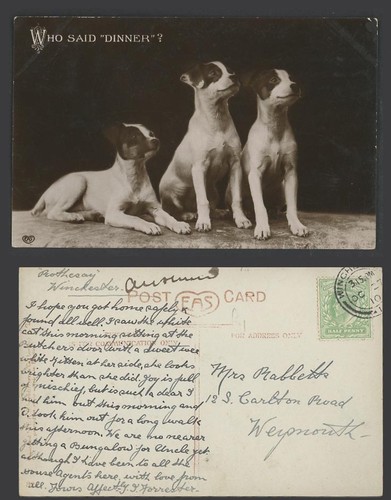 WHO SAID "DINNER"?
EAS
Rothesay
Winchester.
POST EAS CARD
THE ADDRESS ONLY
I hope you got home safely &
found all well, I saw the white
cat this morning sitting at the
Butchers door with a sweet wee
white Kitten at her side, she looks
brighter than she did, Joy is full
of mischief, but is such a dear I
had him out this morning and
D. took him out for a long walk
this afternoon. We are no nearer
getting a Bungalow for Uncle yet
although I have been to all the
House Agents here, with love from
all. Yours Affect
HALF PENNY
Mrs Rabbetts
12 S. Carlton Road
Weymouth